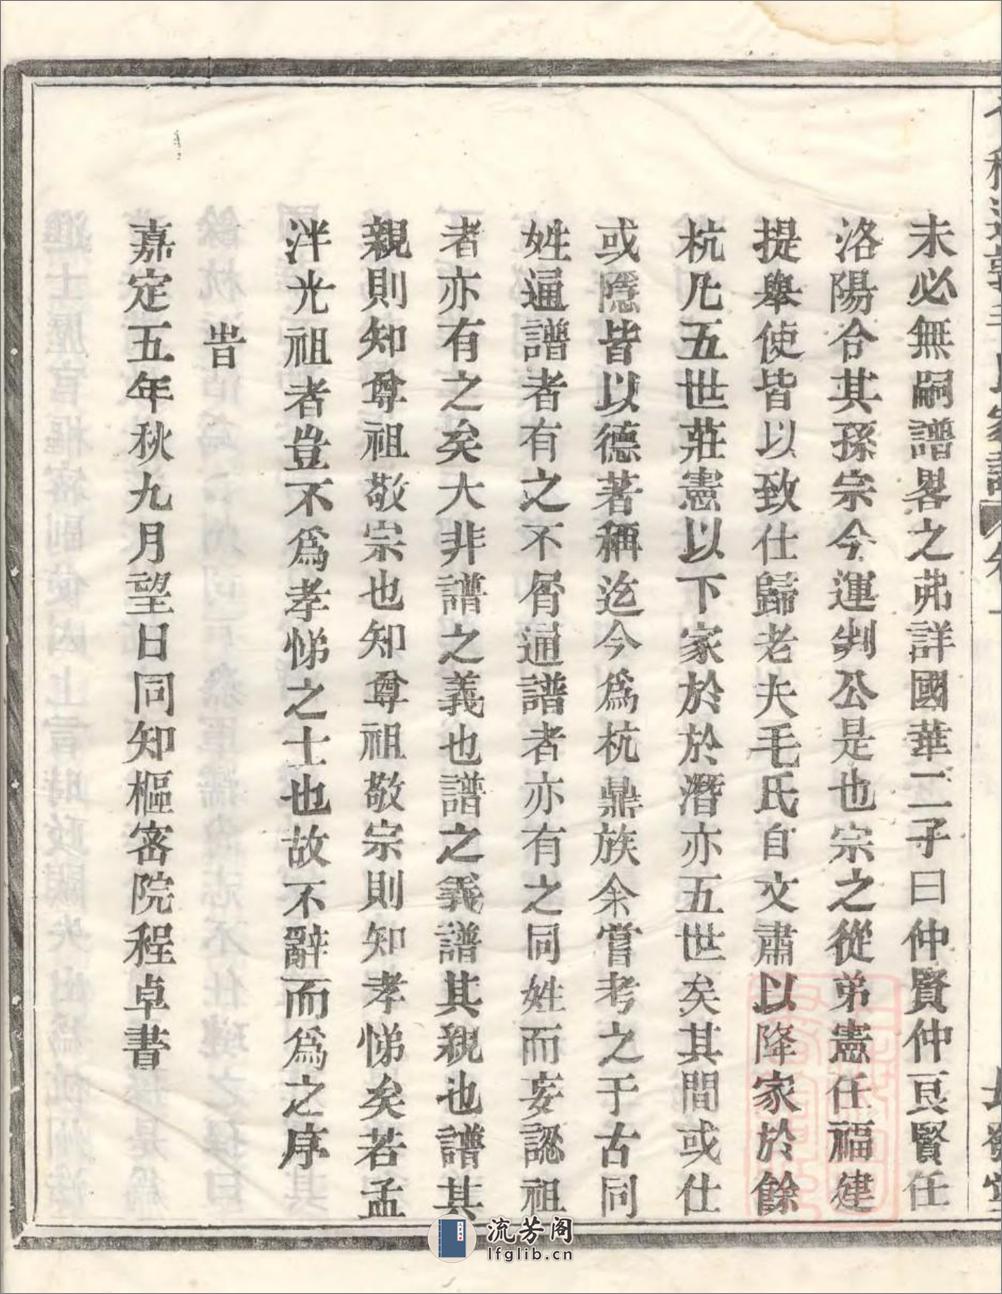 未必無嗣譜畧之弗詳國華二子曰仲賢仲頁賢任
洛陽合其孫宗今運判公是也宗之從弟憲任福建
提舉使皆以致仕歸老夫毛氏自文肅以降家於餘
杭凡五世莊憲以下家於於潛亦五世矣其間或仕
或隱皆以德著稱迄今爲杭鼎族余嘗考之于古同
姓通譜者有之不屑通譜者亦有之同姓而妄認祖
者亦有之矣大非譜之義也譜之義譜其親也譜其
親則知尊祖敬宗也知尊祖敬宗則知孝悌矣若孟
泮光祖者豈不爲孝悌之士也故不辭而爲之序
旹
嘉定五年秋九月望日同知樞密院程卓書
流芳阁
lfglib.cn